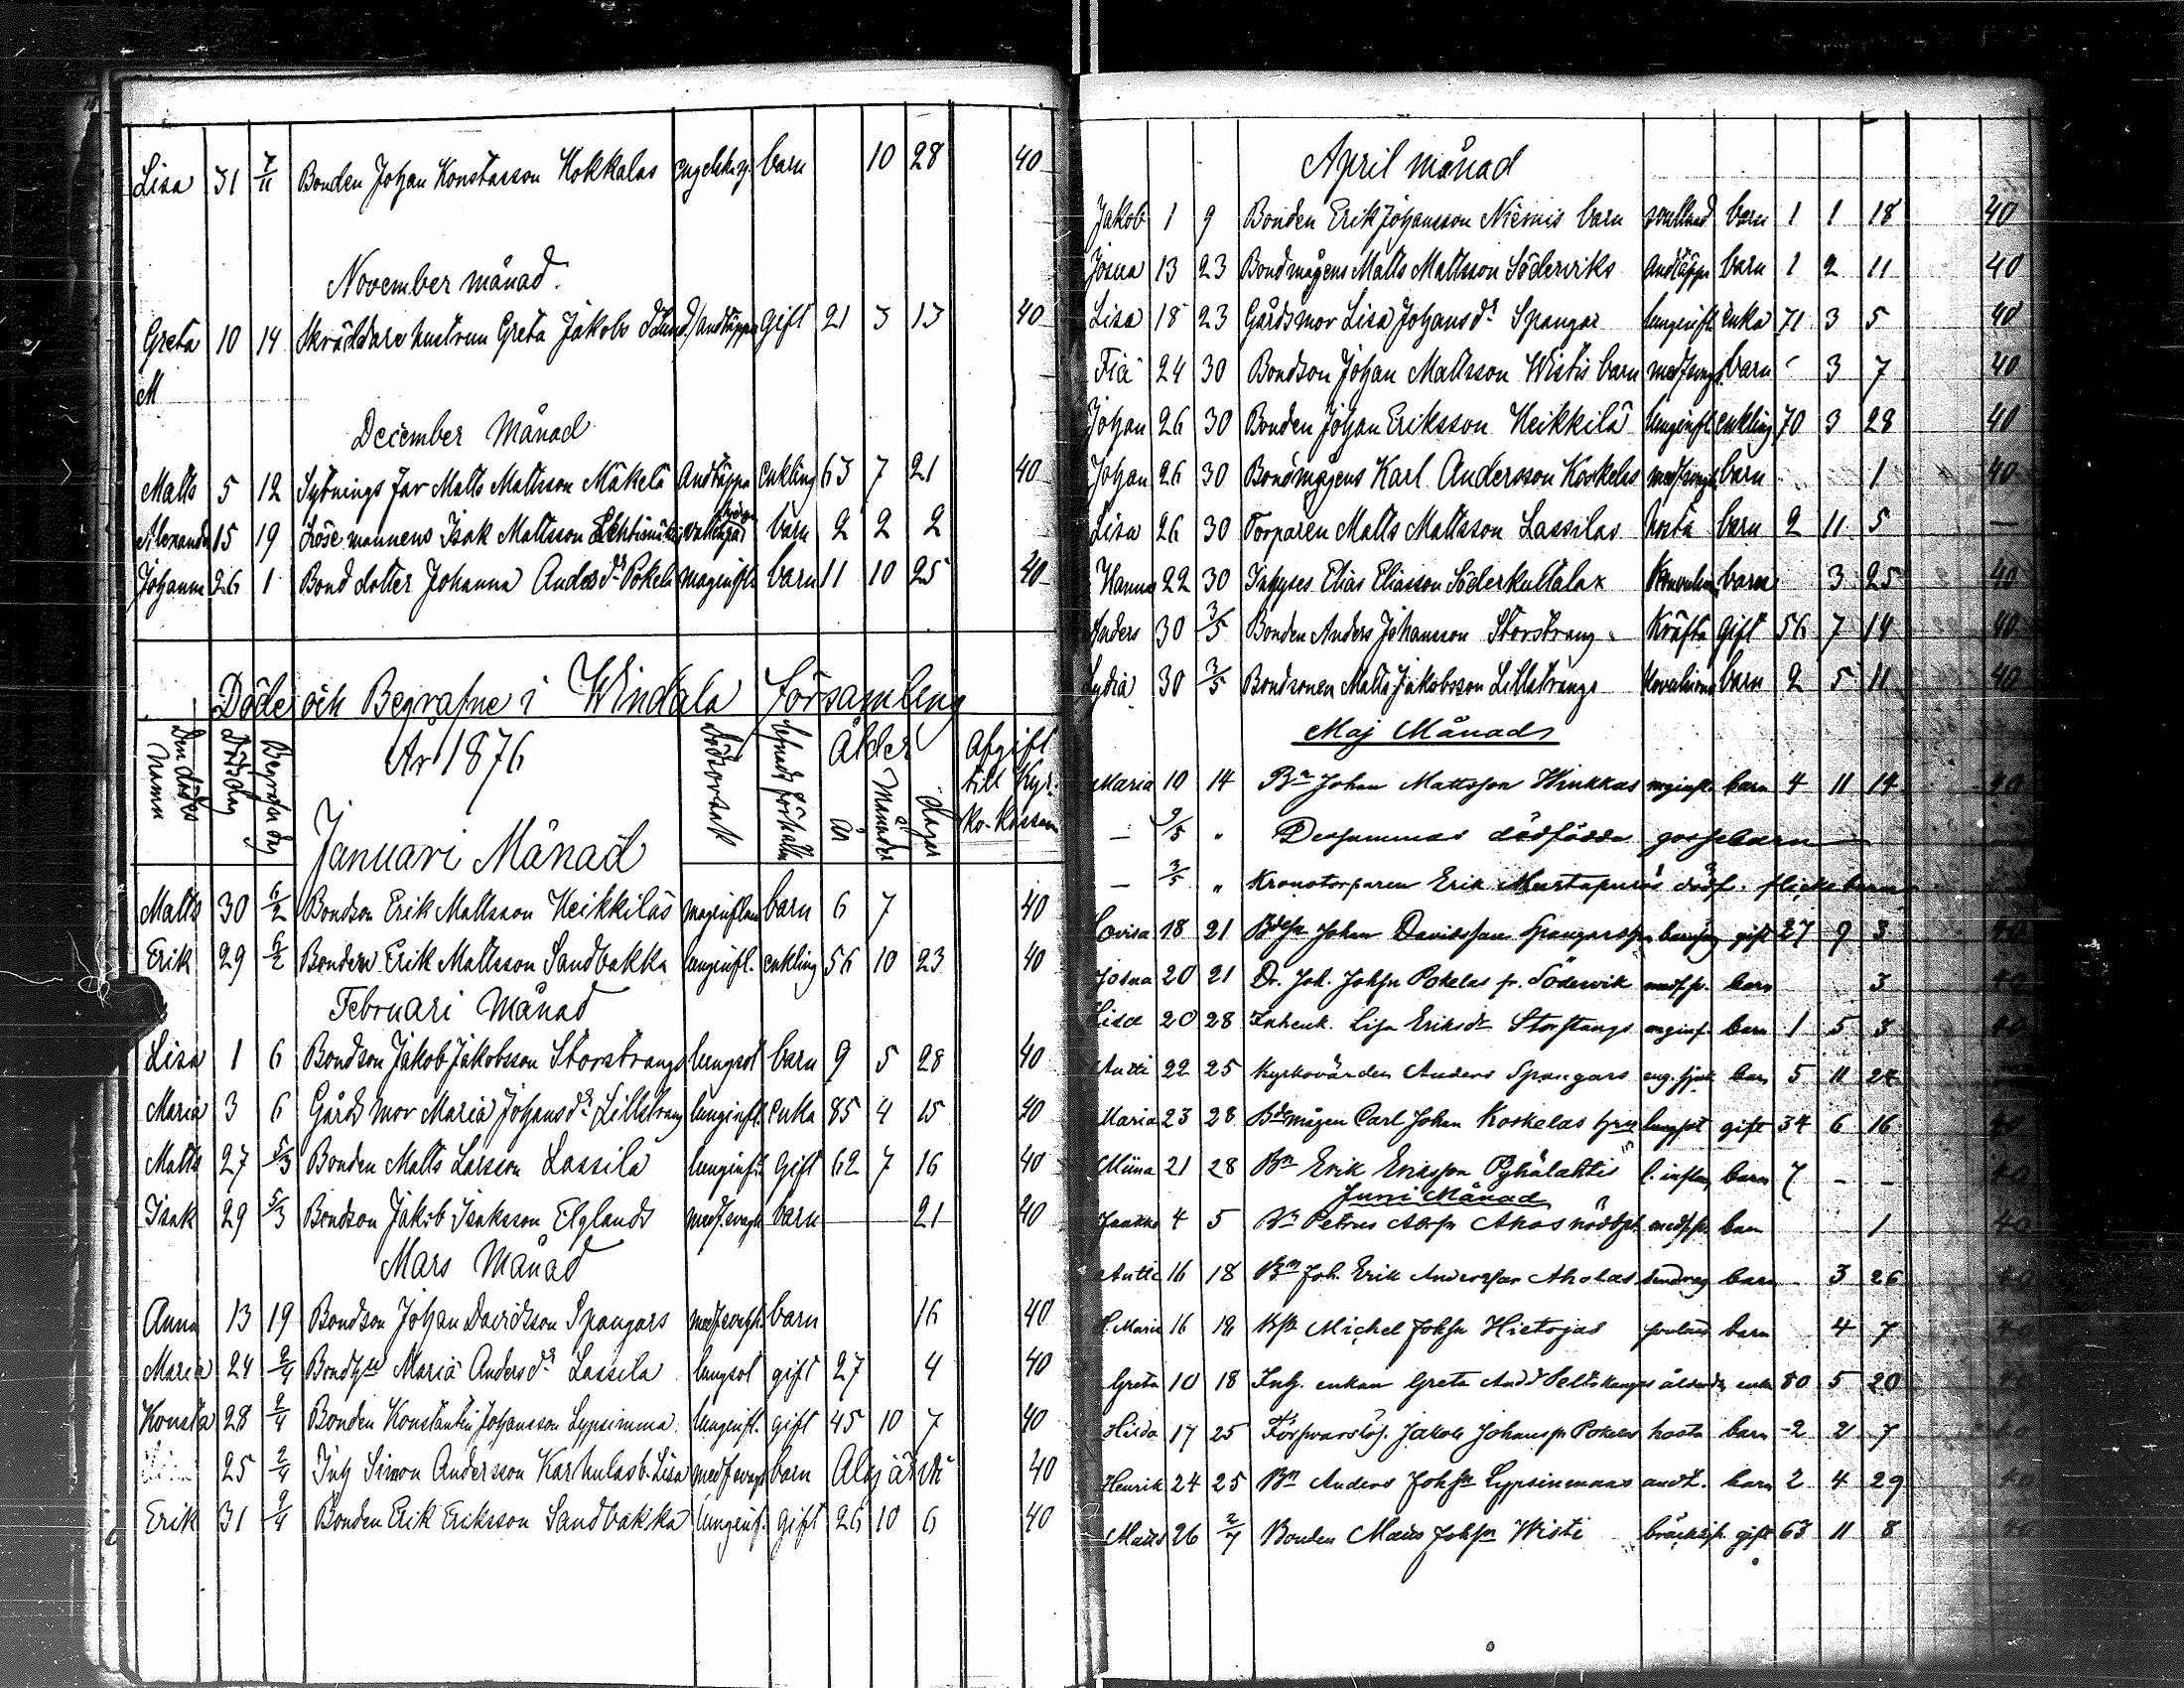 Lisa 31 7/11 Bonden Johan Konstasson Kokkalas engelsk sj. barn 10 28 40
November månad.
Greta 10 14 Skräddare hustrun Greta Jakobs d Lund Andtäppa gift 21 3 13 40
M
December Månad
Matts 5 12 Sytnings far Matts Mattsson Mäkelä Andtäppa enkling 63 7 21 40
Alexander 15 19 Lösemannens Isak Mattsson barn 2 2 2
Johanna 26 1 Bond dotter Johanna Anders dr Pokela maginfl. barn 11 10 25 40
Döde och Begrafne i Windala Församling
År 1876
Den dödes Namn Dödsdag Begrafn. dag Dödsorsak Ålder År Månader Dagar Afgift till Kyrko-kassan
Januari Månad
Matts 30 6/2 Bondson Erik Mattsson Heikkiläs maginflam barn 6 7 40
Erik 29 6/2 Bonden Erik Mattsson Sandbakka lunginfl. enkling 56 10 23 40
Februari Månad
Lisa 1 6 Bondson Jakob Jakobsson Storstrangs lungsot barn 9 5 28 40
Maria 3 6 Gårds mor Maria Johans dr Lillstrang lunginfl. enka 85 4 15 40
Matts 27 5/3 Bonden Matts Larsson Lassila lunginfl. gift 62 7 16 40
Isak 29 5/3 Bondson Jakob Isaksson Elglands medf. svagh. barn 21 40
Mars Månad
Anna 13 19 Bondson Johan Davidsson Spangars medf. svagh. barn 16 40
Maria 24 2/4 Bondh Maria Anders dr Lassila lungsot gift 27 4 40
Konsta 28 2/4 Bonden Konstantin Johansson Lypsinmaa lunginfl. gift 45 10 7 40
25 2/4 Inh Simon Andersson Karhulas b. Lisa medf. svagh barn 40
Erik 31 9/4 Bonden Erik Eriksson Sandbakka lunginf. gift 26 10 6 40
April månad
Jakob 1 9 Bonden Erik Johansson Niemis barn barn 1 1 18 40
Josua 13 23 Bondmågens Matts Mattsson Söderviks Andtäppa barn 1 2 11 40
Lisa 18 23 Gårdsmor Lisa Johans dr Spangar lunginfl. enka 71 3 5 40
Fia 24 30 Bondson Johan Mattsson Wistis barn medf. svagh. barn 3 7 40
Johan 26 30 Bonden Johan Eriksson Heikkilä lunginfl. enkling 70 3 28 40
Johan 26 30 Bondmågens Karl Andersson Koskelas medf. svagh. barn 1 40
Lisa 26 30 Torparen Matts Mattsson Lassilas hosta barn 2 11 5 —
Hanna 22 30 Inhyses Elias Eliasson Söderkultalax Konvulsion barn 3 25 40
Anders 30 3/5 Bonden Anders Johansson Storstrang Kräfta Gift 56 7 14 40
Lydia 30 3/5 Bondsonen Matts Jakobsson Lillstrangs barn 2 5 11 40
Maj Månad
Maria 10 14 Bn Johan Mattsson Winkkas maginfl. barn 4 11 14 40
— " Desammas dödfödda gossebarn
— 3/5 " Kronotorparen Erik Murtapuros dödf. flickebarn
Lovisa 18 21 Johan Davidsson Spangars barnsäng gift 27 9 3 40
Josua 20 21 Dr. Joh. Johsn Pokelas fr. Södervik medf. sv. barn 3 40
Lisa 20 28 Inhenk. Lisa Eriksdr Storstangs maginf. barn 1 5 3 40
Antti 22 25 Kyrkovärden Anders Spangars eng. sjuk barn 5 11 24
Maria 23 28 Bdemågen Carl Johan Koskelas hru lungsot gift 34 6 16 40
Miina 21 28 Bn Erik Eriksson Pyhälahtis l. inflam barn 7 - - 40
Juni Månad
Jaakko 4 5 Bn Petrus Absn Ahos nödöpt. medf. sv. barn 1 40
Antti 16 18 Bn Joh. Erik Andersson Aholas barn 3 26 40
L. Maria 16 18 Michel Johsn Hietojas barn 4 7 40
Greta 10 18 Inh. enkan Greta And.d Seltskangas ålderdom enka 80 5 20 40
Hilda 17 25 Försvarslös. Jakob Johansn Pokelas hosta barn 2 2 7 40
Henrik 24 25 Bn Anders Johsn Lypsinmaas andt. barn 2 4 29 40
Matts 26 2/7 Bonden Matts Johsn Wisti gift 63 11 8 40